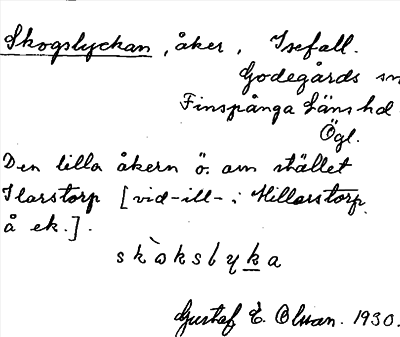 Skogslyckan, åker, Isefall.
Godegårds sn
Finspånga läns hd
Ögl.
Den lilla åkern ö. om stället
Ilarstorp [vid -ill- i Hillarstorp
å ek.].
skòkslyka
Gustaf E. Olsson. 1930.